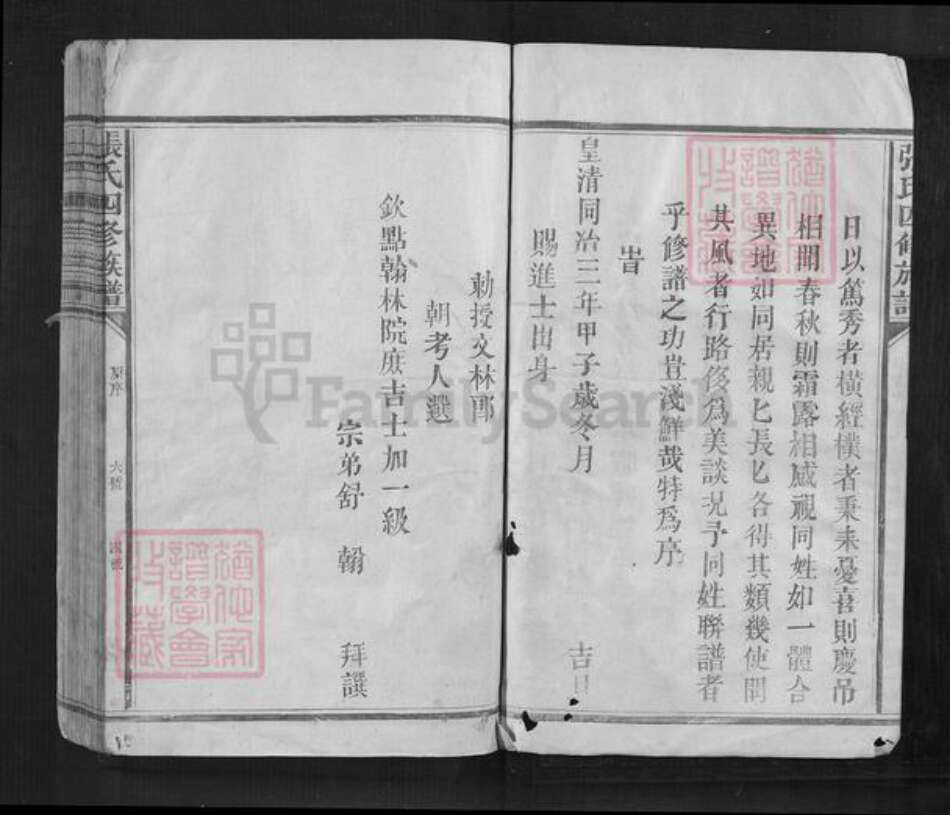 張氏四修族譜
日以篤秀者橫經樸者秉耒憂喜則慶吊
相聞春秋則霜露相感視同姓如一體合
異地如同居親匕長匕各得其類幾使聞
其風者行路後爲美談况予同姓聯譜者
乎修譜之功豈淺鮮哉特爲序
旹
皇清同治三年甲子歲冬月 吉
賜進士出身
勅授文林郎
朝考入選
欽點翰林院庶吉士加一級
宗弟舒翰 拜譔
張氏四修族譜
原序
六號
FamilySearch
譜學會
收藏